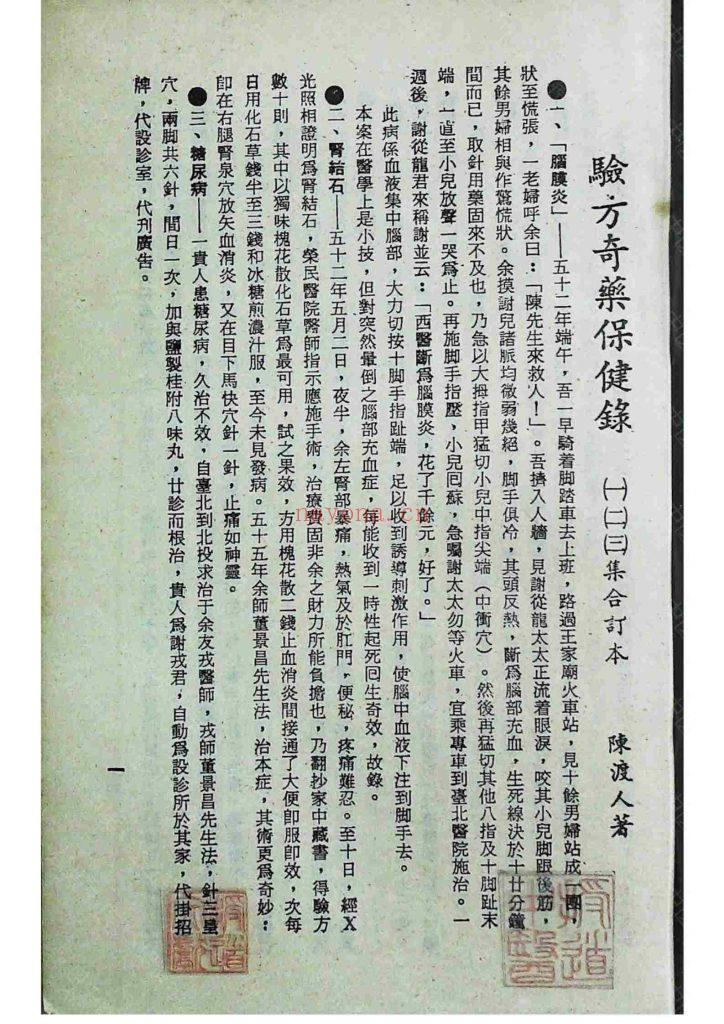 驗方奇藥保健錄 ㈠㈡㈢集合訂本 陳渡人著
●一、「腦膜炎」——五十二年端午，吾一早騎着脚踏車去上班，路過王家廟火車站，見十餘男婦站成一團，
狀至慌張，一老婦呼余曰：「陳先生來救人！」。吾擠入人牆，見謝從龍太太正流着眼淚，咬其小兒脚跟後筋，
其餘男婦相與作驚慌狀。余摸謝兒諸脈均微弱幾絕，脚手俱冷，其頭反熱，斷爲腦部充血，生死線決於十廿分鐘
間而已，取針用藥固來不及也，乃急以大拇指甲猛切小兒中指尖端（中衝穴）。然後再猛切其他八指及十脚趾末
端，一直至小兒放聲一哭爲止。再施脚手指壓，小兒囘蘇，急囑謝太太勿等火車，宜乘專車到臺北醫院施治。一
週後，謝從龍君來稱謝並云：「西醫斷爲腦膜炎，花了千餘元，好了。」
此病係血液集中腦部，大力切按十脚手指趾端，足以收到誘導刺激作用，使腦中血液下注到脚手去。
本案在醫學上是小技，但對突然暈倒之腦部充血症，每能收到一時性起死回生奇效，故錄。
●二、腎結石——五十二年五月二日，夜半，余左腎部暴痛，熱氣及於肛門，便秘，疼痛難忍。至十日，經X
光照相證明爲腎結石，榮民醫院醫師指示應施手術，治療費固非余之財力所能負擔也，乃翻抄家中藏書，得驗方
數十則，其中以獨味槐花散化石草爲最可用，試之果效，方用槐花散二錢止血消炎間接通了大便卽服卽效，次每
日用化石草錢半至三錢和冰糖煎濃汁服，至今未見發病。五十五年余師董景昌先生法，治本症，其術更爲奇妙：
卽在右腿腎泉穴放矢血消炎，又在目下馬快穴針一針，止痛如神靈。
●三、糖尿病——一貴人患糖尿病，久治不效，自臺北到北投求治于余友戎醫師，戎師董景昌先生法，針三皇
穴，兩脚共六針，間日一次，加與鹽製桂附八味丸，廿診而根治，貴人爲謝戎君，自動爲設診所於其家，代掛招
牌，代設診室，代刋廣告。
一
nayona.cn